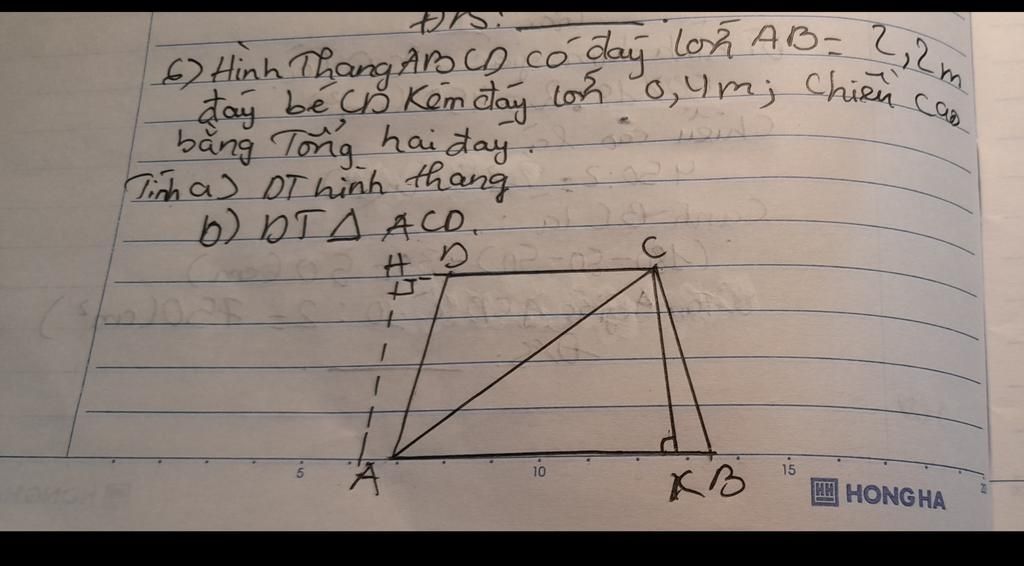 6) Hình Thang ABCD có đáy lớn AB = 2,2m
đáy bé CD Kém đáy lớn 0,4m; Chiều cao
bằng Tổng hai đáy.
Tính a) DT hình thang
b) DT Δ ACD.
H D C
A K B
5 10 15
HONG HA